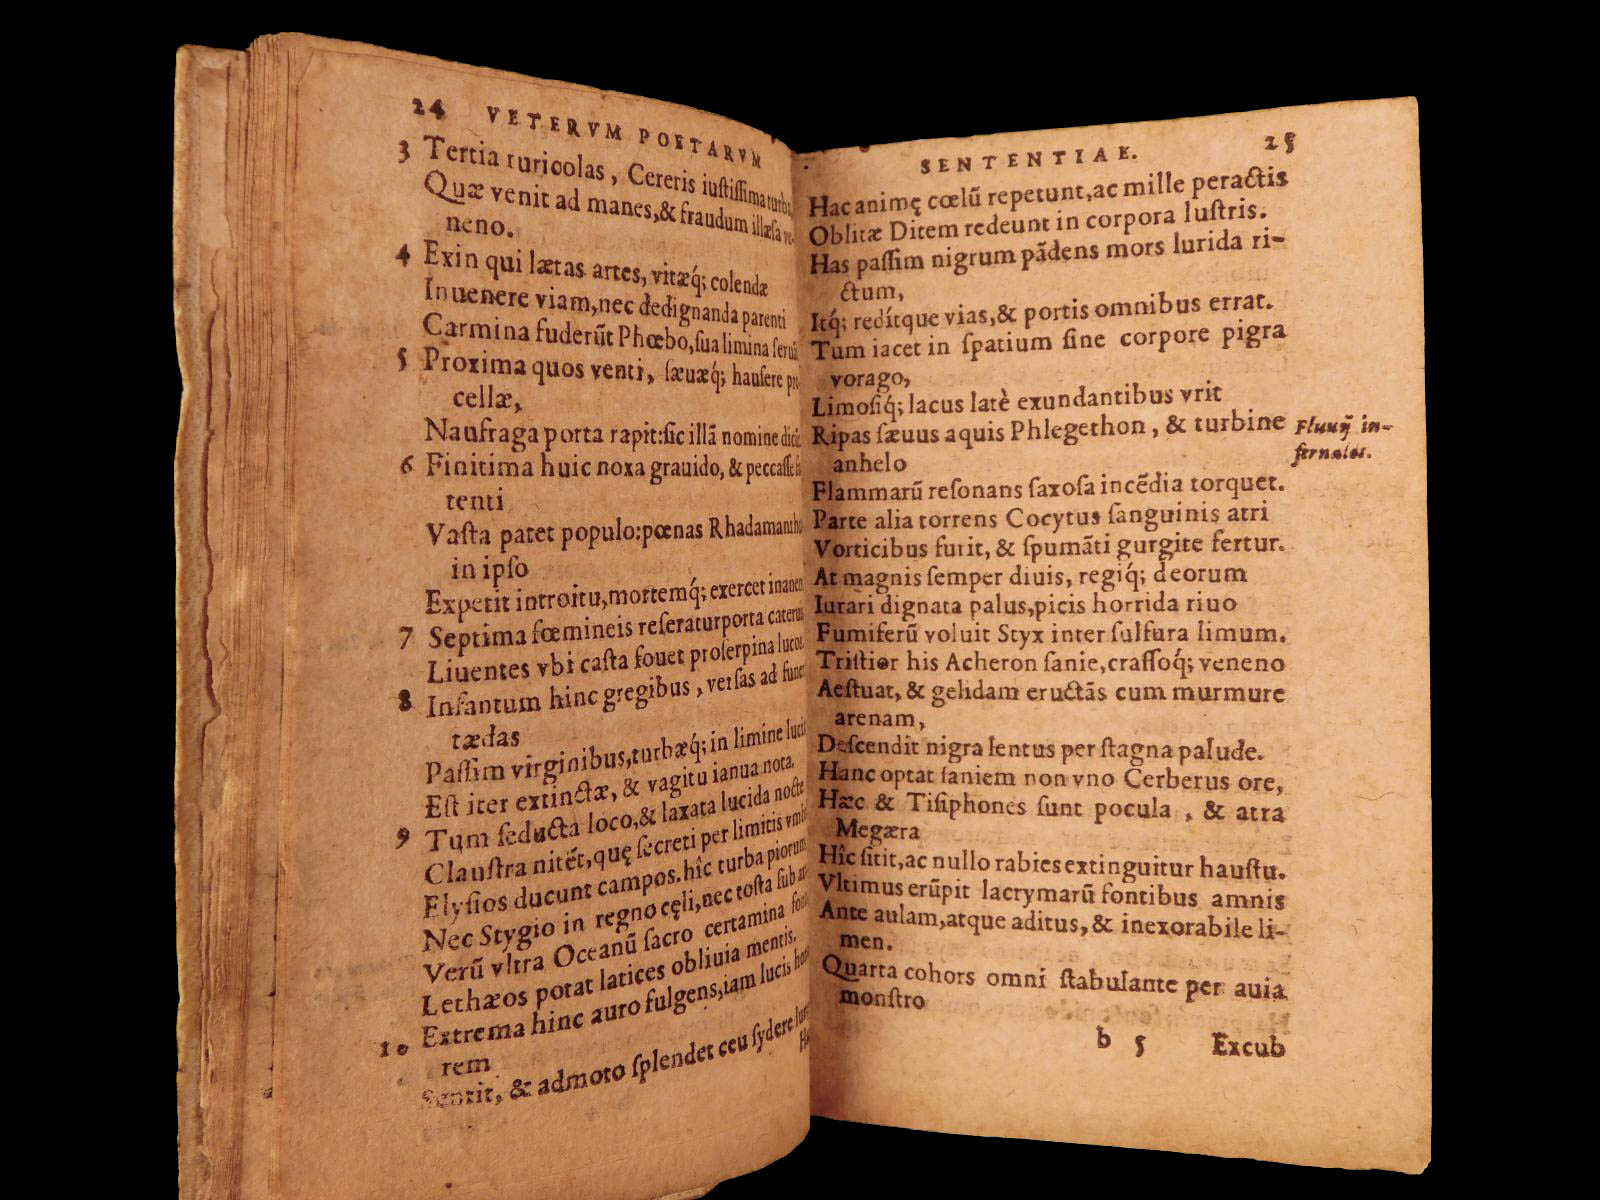 24 VETERVM POETARVM
3 Tertia ruricolas, Cereris iuſtiſſima turba,
Quæ venit ad manes,& fraudum illæſa ve-
neno.
4 Exin qui lætas artes, vitæq́; colendæ
Inuenere viam,nec dedignanda parenti
Carmina fuderũt Phœbo,ſua limina
5 Proxima quos venti, ſæuæq́; hauſere
cellæ,
Naufraga porta rapit:ſic illã nomine
6 Finitima huic noxa grauido, & peccaſſe
tenti
Vaſta patet populo:pœnas
in ipſo
Expetit introitu,mortemq́; exercet
7 Septima fœmineis reſeraturporta
Liuentes vbi caſta fouet proſerpina
8 Infantum hinc gregibus, verſas ad
tædas
Paſſim virginibus,turbæq́; in limine
Eſt iter extinctæ, & vagitu ianua nota.
9 Tum ſeducta loco,& laxata lucida nocte
Clauſtra nitẽt,quę ſecreti per limitis
Elyſios ducunt campos.hîc turba piorum
Nec Stygio in regno cęli,nec toſta ſub
Verũ vltra Oceanũ ſacro certamina
Lethæos potat latices obliuia mentis.
10 Extrema hinc auro fulgens,iam lucis
rem
Sentit, & admoto ſplendet ceu ſydere
SENTENTIAE. 25
Hac animę cœlũ repetunt,ac mille peractis
Oblitæ Ditem redeunt in corpora luſtris.
Has paſſim nigrum pãdens mors lurida ri-
ctum,
Itq́; redítque vias,& portis omnibus errat.
Tum iacet in ſpatium ſine corpore pigra
vorago,
Limoſiq́; lacus latè exundantibus vrit
Ripas ſæuus aquis Phlegethon, & turbine
anhelo
Fluuij in-
fernales.
Flammarũ reſonans ſaxoſa incẽdia torquet.
Parte alia torrens Cocytus ſanguinis atri
Vorticibus furit, & ſpumãti gurgite fertur.
At magnis ſemper diuis, regiq́; deorum
Iurari dignata palus,picis horrida riuo
Fumiferũ voluit Styx inter ſulfura limum.
Triſtior his Acheron ſanie,craſſoq́; veneno
Aeſtuat, & gelidam eructãs cum murmure
arenam,
Deſcendit nigra lentus per ſtagna palude.
Hanc optat ſaniem non vno Cerberus ore,
Hæc & Tiſiphones ſunt pocula, & atra
Megæra
Hîc ſitit,ac nullo rabies extinguitur hauſtu.
Vltimus erũpit lacrymarũ fontibus amnis
Ante aulam,atque aditus, & inexorabile li-
men.
Quarta cohors omni ſtabulante per auia
monſtro
b 5 Excub